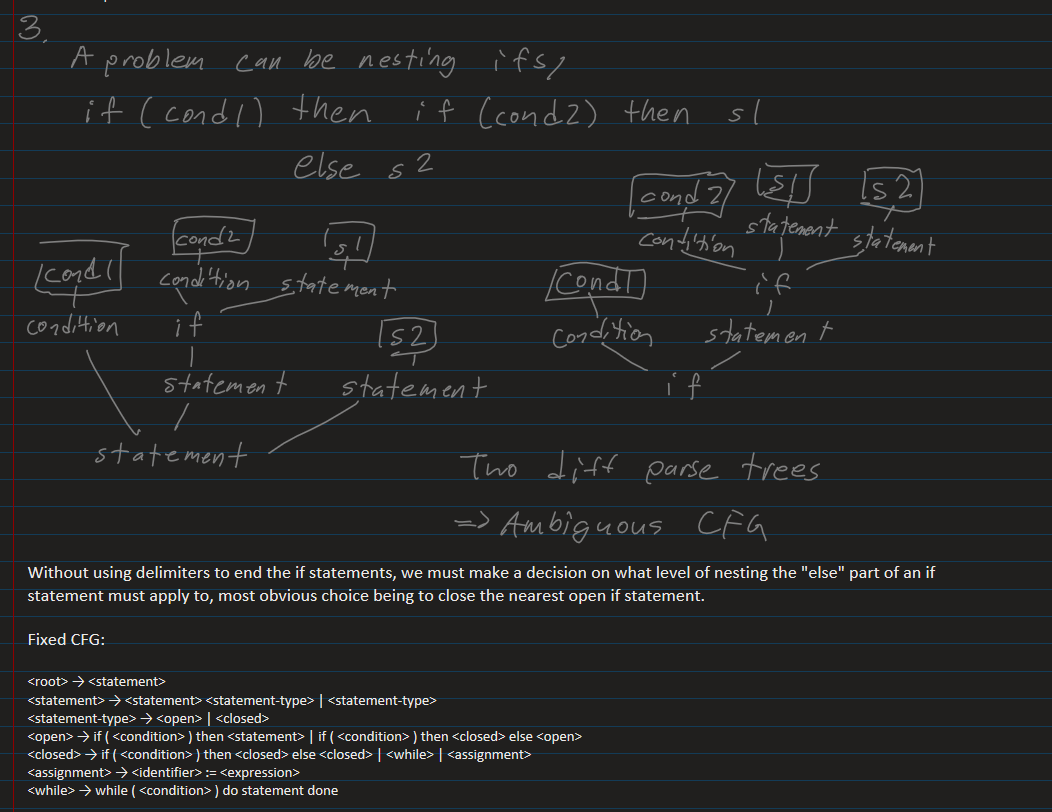 3.
A problem can be nesting ifs,
if (cond1) then if (cond2) then s1
else s2
cond1
condition
cond2
condition
s1
statement
if
statement
s2
statement
statement
cond 2
condition
s1
statement
s2
statement
if
Cond1
Condition
statement
if
Two diff parse trees
=> Ambiguous CFG
Without using delimiters to end the if statements, we must make a decision on what level of nesting the "else" part of an if
statement must apply to, most obvious choice being to close the nearest open if statement.
Fixed CFG:
<root> → <statement>
<statement> → <statement> <statement-type> | <statement-type>
<statement-type> → <open> | <closed>
<open> → if ( <condition> ) then <statement> | if ( <condition> ) then <closed> else <open>
<closed> → if ( <condition> ) then <closed> else <closed> | <while> | <assignment>
<assignment> → <identifier> := <expression>
<while> → while ( <condition> ) do statement done